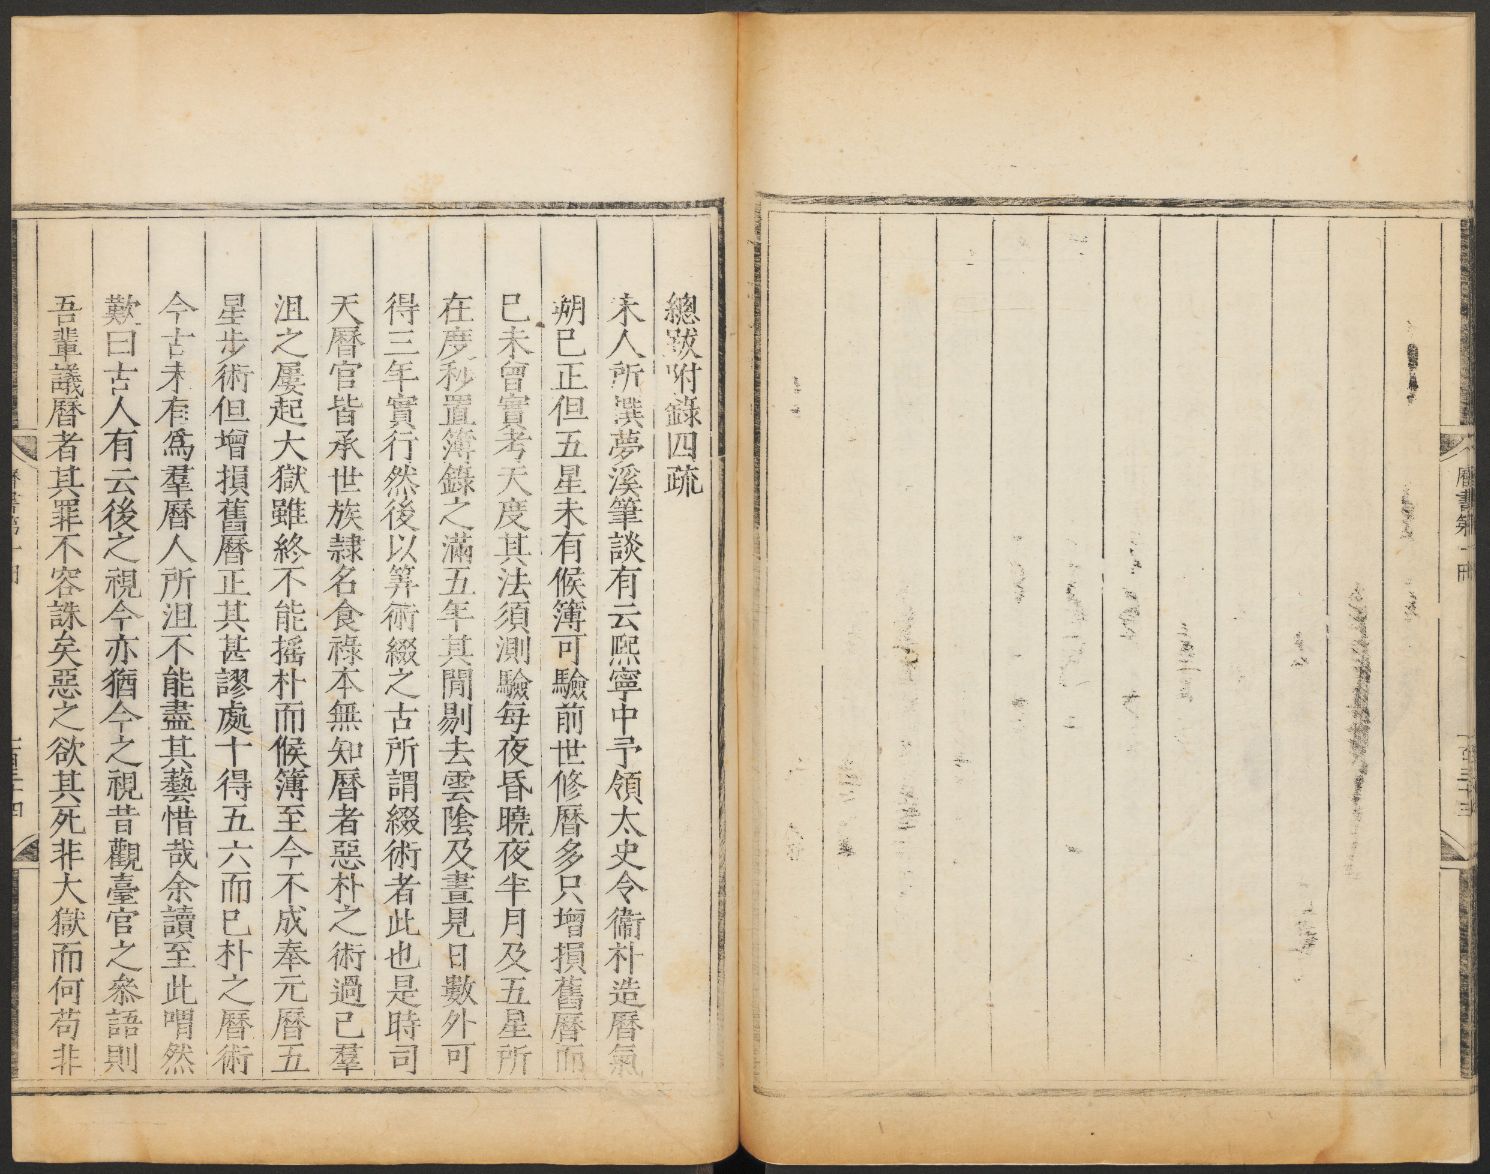 曆書第一冊
一百三十三
總跋附錄四疏
宋人所撰夢溪筆談有云熙寧中予領太史令衞朴造曆氣
朔已正但五星未有候簿可驗前世修曆多只增損舊曆而
已未曾實考天度其法須測驗每夜昏曉夜半月及五星所
在度秒置簿錄之滿五年其間剔去雲陰及晝見日數外可
得三年實行然後以筭術綴之古所謂綴術者此也是時司
天曆官皆承世族隷名食祿本無知曆者惡朴之術過己羣
沮之屢起大獄雖終不能搖朴而候簿至今不成奉元曆五
星步術但增損舊曆正其甚謬處十得五六而已朴之曆術
今古未有爲羣曆人所沮不能盡其藝惜哉余讀至此喟然
歎曰古人有云後之視今亦猶今之視昔觀臺官之叅語則
吾輩議曆者其罪不容誅矣惡之欲其死非大獄而何苟非